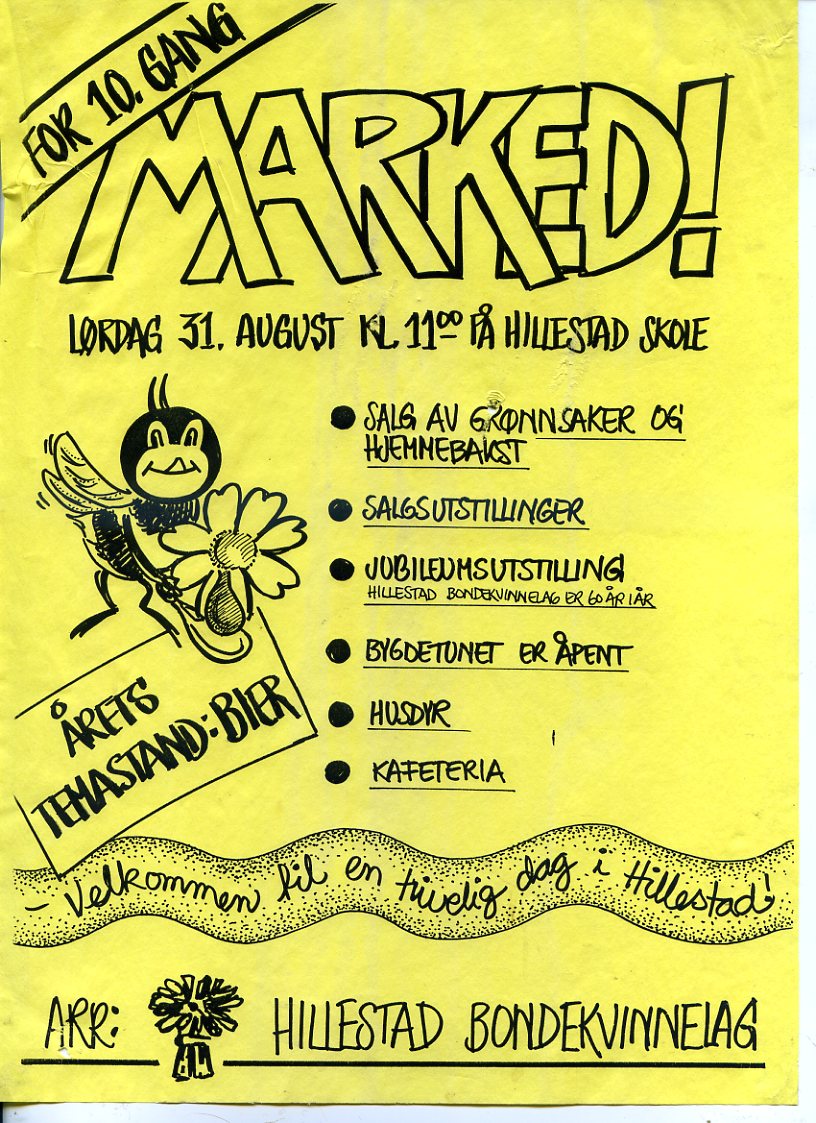 FOR 10. GANG
MARKED!
LØRDAG 31. AUGUST KL 11⁰⁰ PÅ HILLESTAD SKOLE
● SALG AV GRØNNSAKER OG
HJEMMEBAKST
● SALGSUTSTILLINGER
● JUBILEUMSUTSTILLING
HILLESTAD BONDEKVINNELAG ER 60 ÅR I ÅR
● BYGDETUNET ER ÅPENT
● HUSDYR
● KAFETERIA
ÅRETS
TEMASTAND: BIER
- Velkommen til en trivelig dag i Hillestad!
ARR: HILLESTAD BONDEKVINNELAG